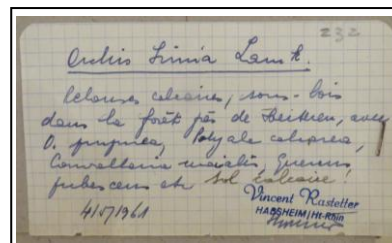 232
Orchis Simia Lamk.
calcaires, sous-bois
dans la forêt près de avec
O. purpurea, Polygala calcarea,
Convallaria maialis, Quercus
pubescens etc Sol Calcaire!
4/5/1961
Vincent Rastetter
HABSHEIM/Ht-Rhin